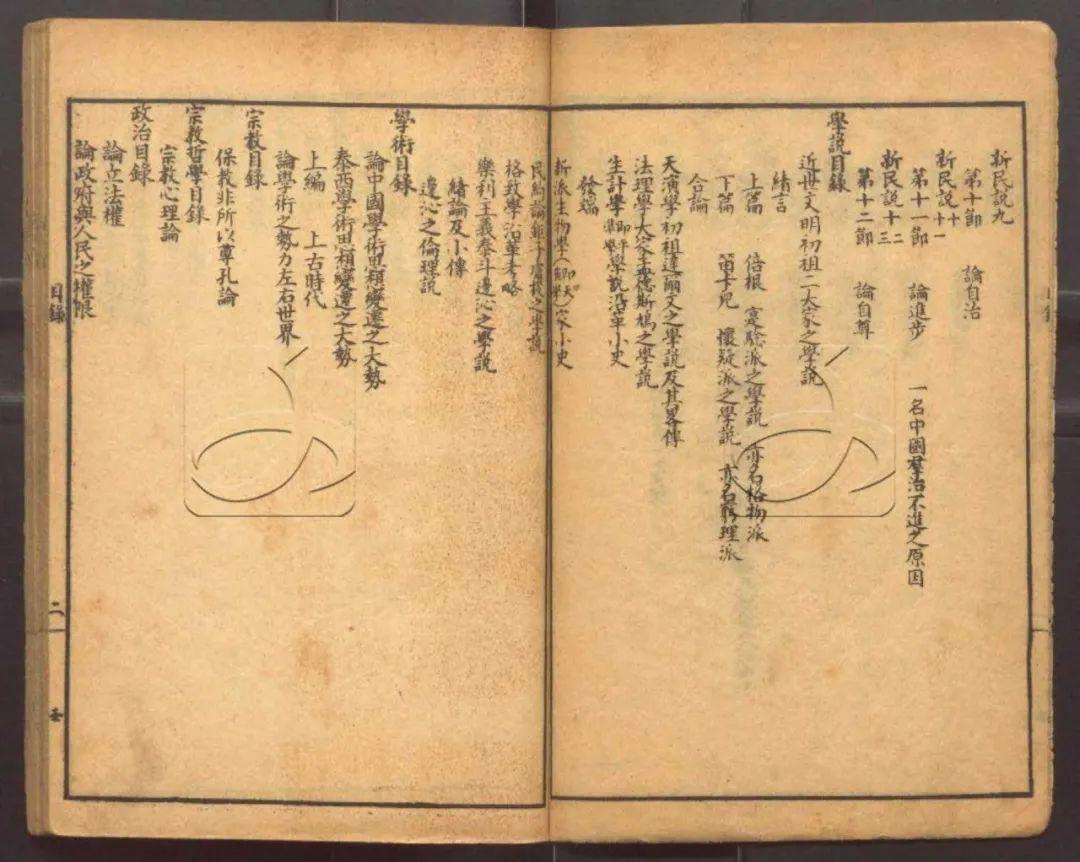 新民説九
第十節 論自治
新民説十
新民説十一
第十一節 論進步 一名中國羣治不進之原因
新民説十二
新民説十三
第十二節 論自尊
學説目錄
近世文明初祖二大家之學説
緒言
上篇 倍根 實驗派之學説 亦名格物派
下篇 笛卡兒 懷疑派之學説 亦名窮理派
合論
天演學初祖達爾文之學説及其畧傳
法理學大家孟德斯鳩之學説
生計學 即平準學 學説沿革小史
發端
新派生物學(即天演學)家小史
民約論鉅子盧梭之學説
格致學沿革考略
樂利主義泰斗邊沁之學説
緒論及小傳
邊沁之倫理説
學術目錄
論中國學術思想變遷之大勢
泰西學術思想變遷之大勢
上編 上古時代
論學術之勢力左右世界
宗教目錄
保教非所以尊孔論
宗教哲學目錄
宗教心理論
政治目錄
論立法權
論政府與人民之權限
目錄
二